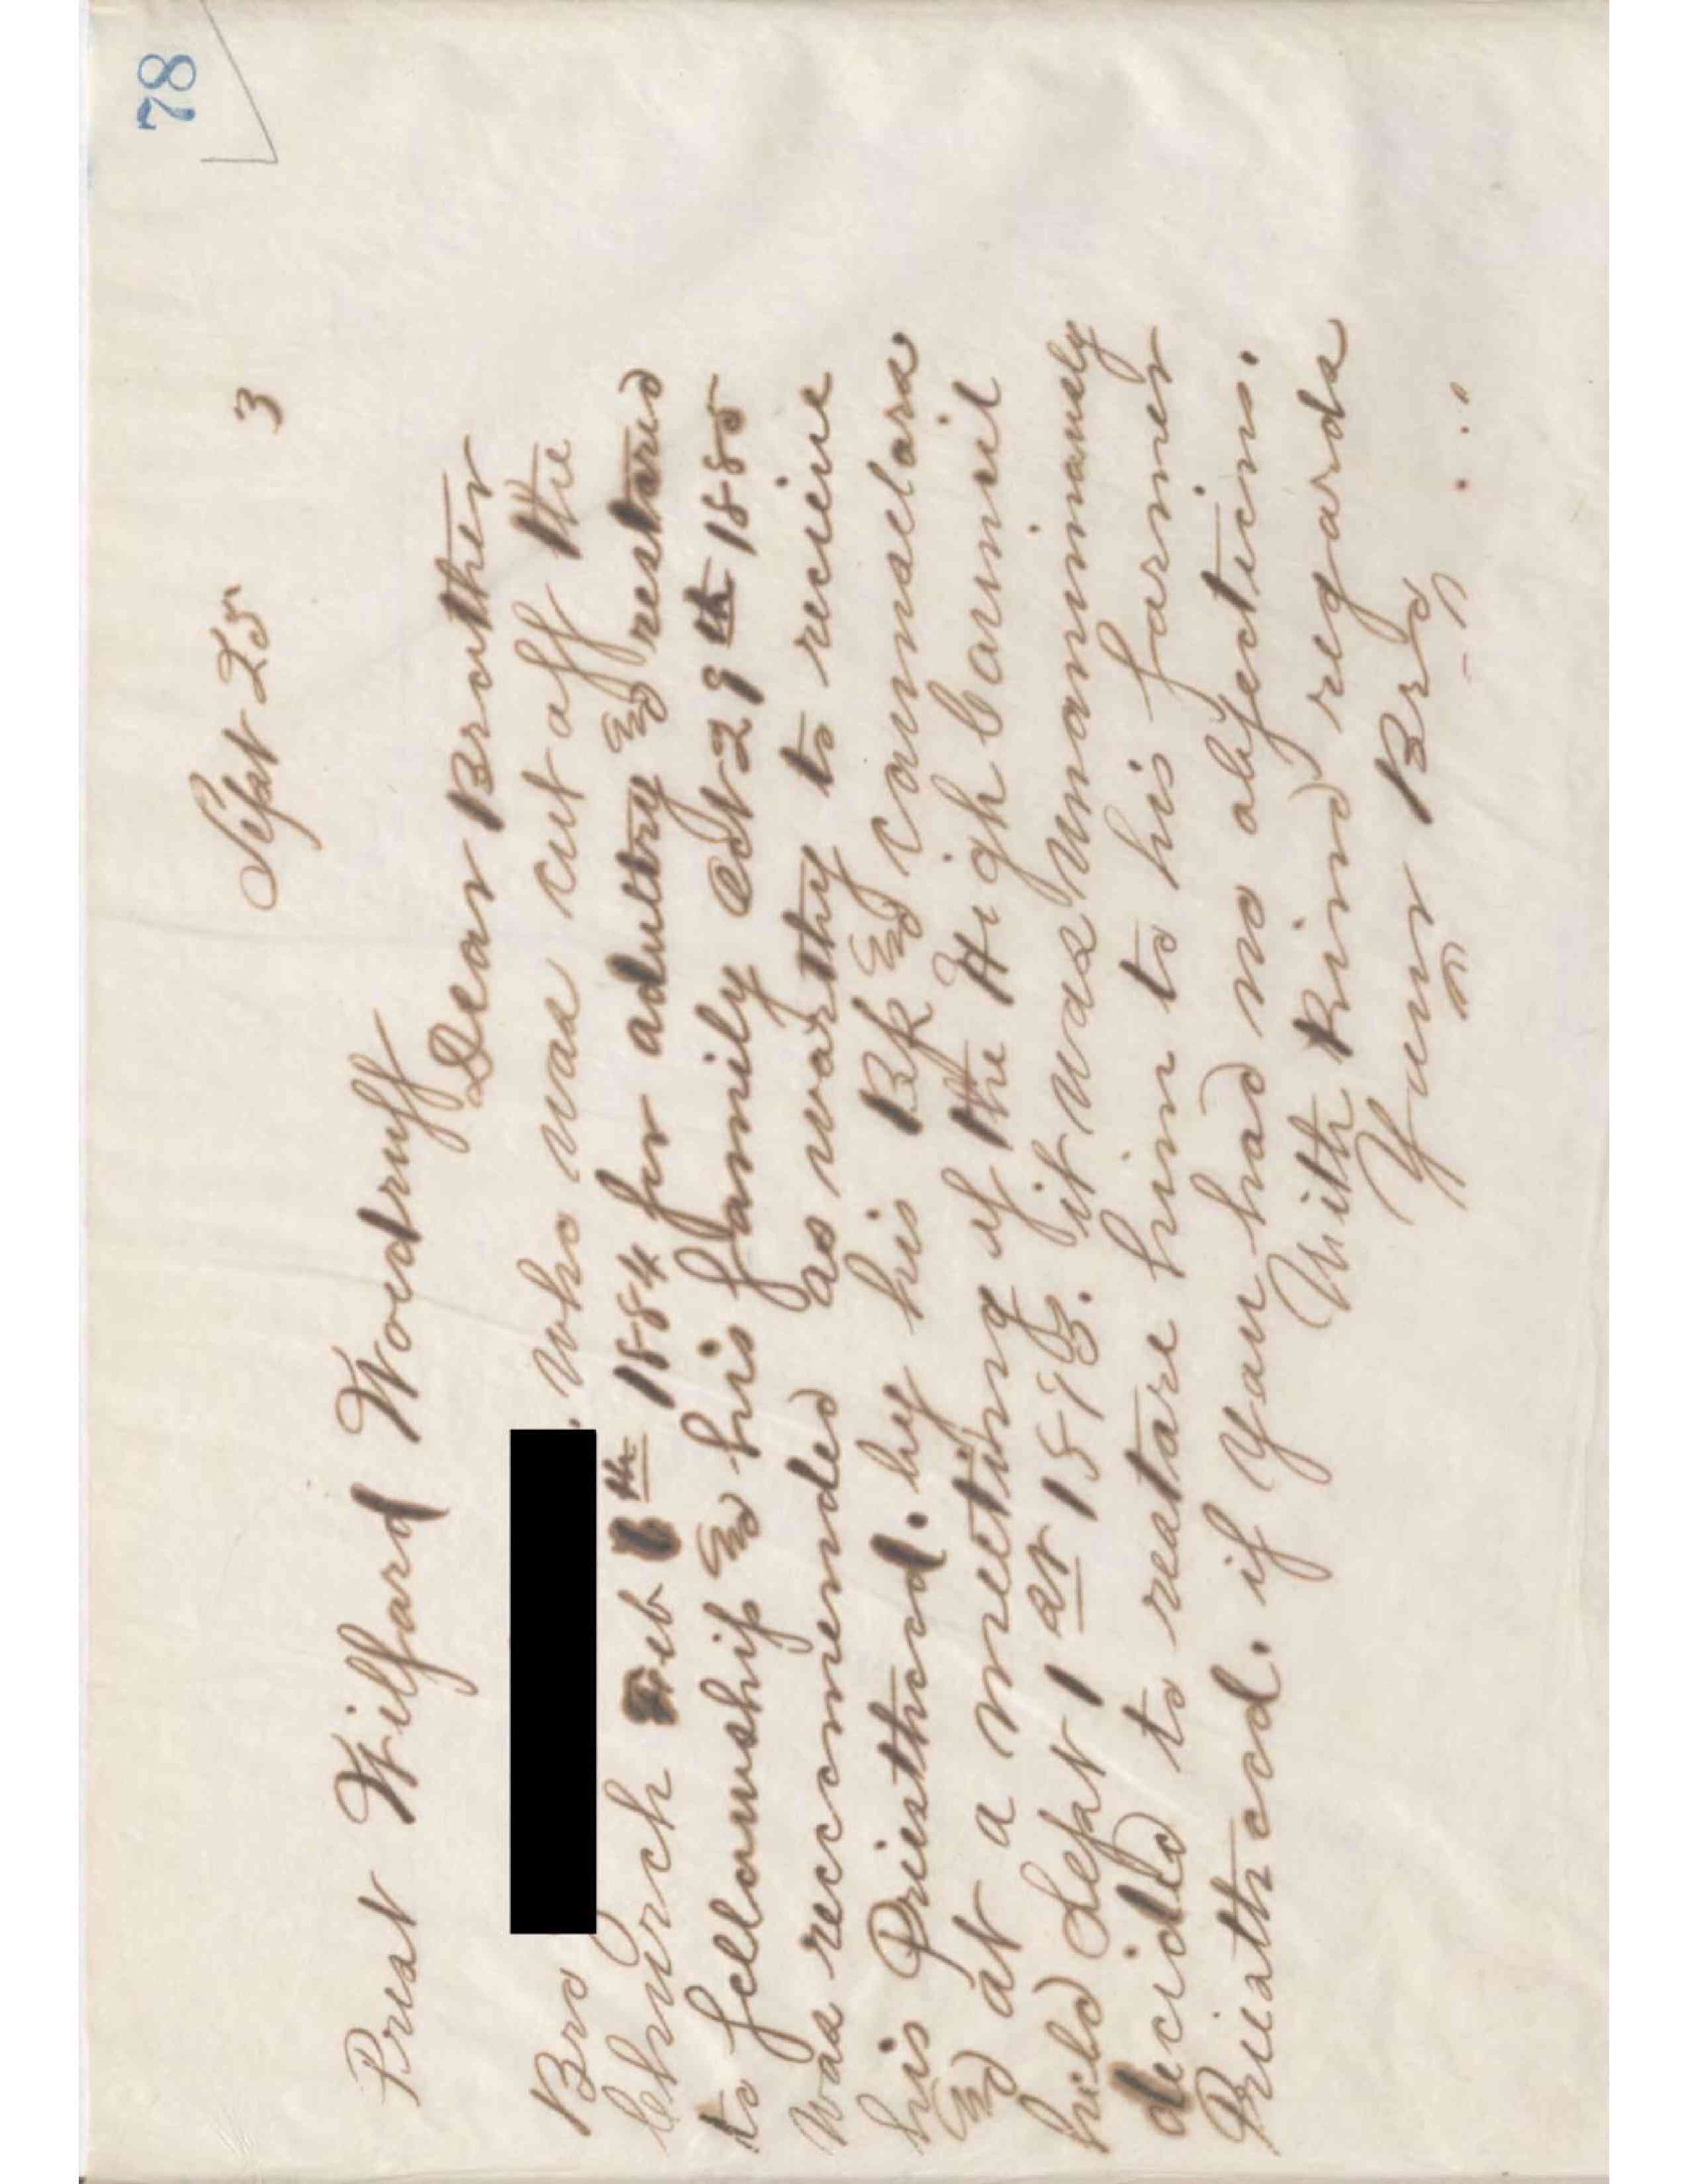 78
Sept 25 3
Prest Wilford Woodruff
Dear Brother
Bro . who was cut off the
Church Feb 6th 1884 for adultery and restored
to fellowship and his family Oct 29th 1885
was reccomended as worthy to recieve
his Priesthood. by his Bp and counselors
and at a meeting of the High Council
held Sept 1st 1893. it was unanimously
decided to restore him to his former
Priesthood. if you had no objections.
With kind regards
Your Bro